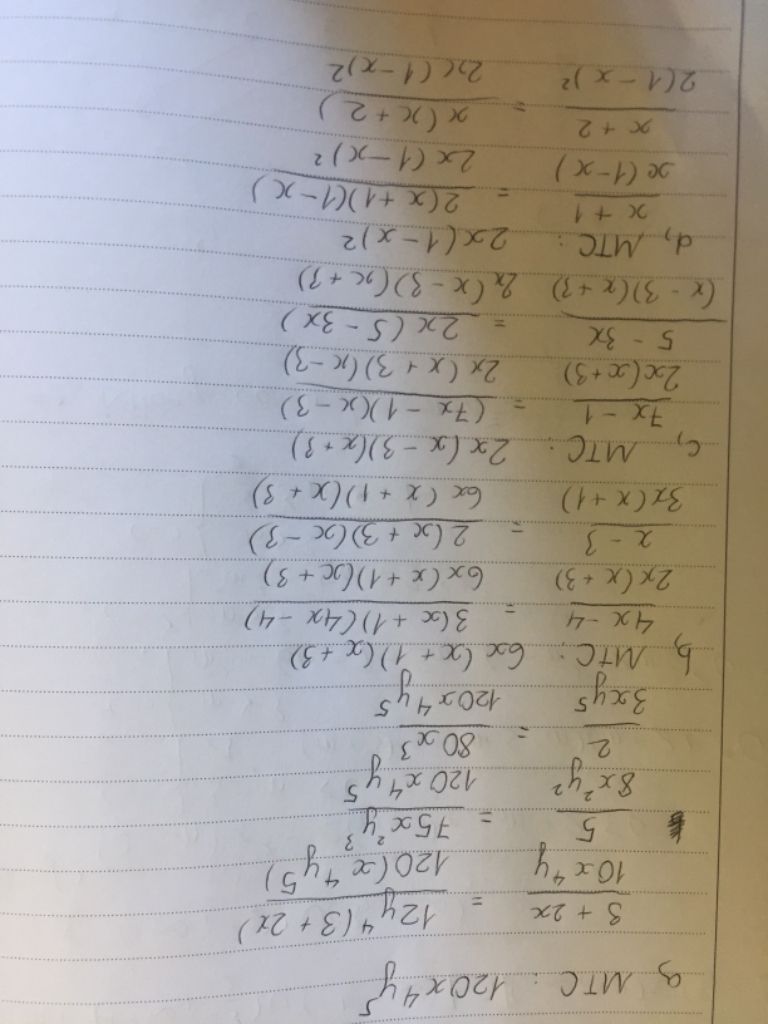 a, MTC : 120x⁴y⁵
3 + 2x / 10x⁴y = 12y⁴(3 + 2x) / 120(x⁴y⁵)
5 / 8x²y² = 75x²y³ / 120x⁴y⁵
2 / 3xy⁵ = 80x³ / 120x⁴y⁵
b, MTC : 6x(x + 1)(x + 3)
4x - 4 / 2x(x + 3) = 3(x + 1)(4x - 4) / 6x(x + 1)(x + 3)
x - 3 / 3x(x + 1) = 2(x + 3)(x - 3) / 6x(x + 1)(x + 3)
c, MTC : 2x(x - 3)(x + 3)
7x - 1 / 2x(x + 3) = (7x - 1)(x - 3) / 2x(x + 3)(x - 3)
5 - 3x / (x - 3)(x + 3) = 2x(5 - 3x) / 2x(x - 3)(x + 3)
d, MTC : 2x(1 - x)²
x + 1 / x(1 - x) = 2(x + 1)(1 - x) / 2x(1 - x)²
x + 2 / 2(1 - x)² = x(x + 2) / 2x(1 - x)²